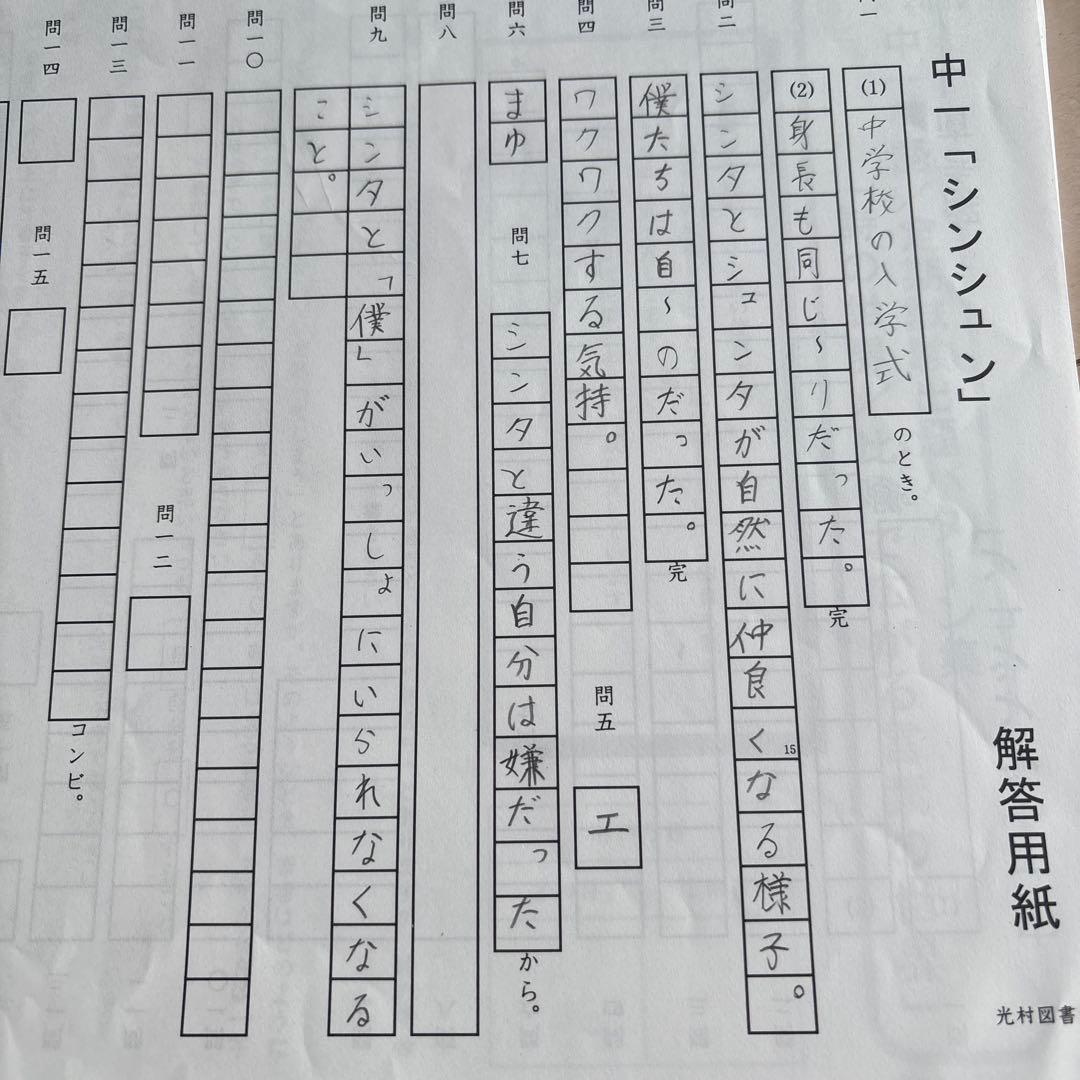 中一「シンシュン」 解答用紙
光村図書
(1) 中学校の入学式 のとき。
(2) 身長も同じ~りだった。 完
問二 シンタとシュンタが自然に仲良くなる様子。
15
問三 僕たちは自~のだった。 完
問四 ワクワクする気持。
問五 エ
問六 まゆ
問七 シンタと違う自分は嫌だった から。
問八
問九 シンタと「僕」がいっしょにいられなくなる
こと。
問一〇
問一一
問一二
問一三 コンビ。
問一四
問一五